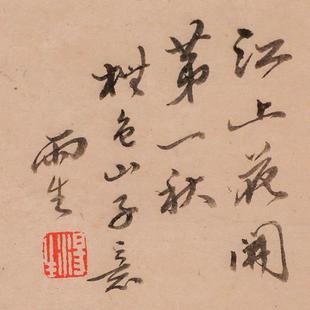 江上花開
第一秋
橅包山子意
雨生